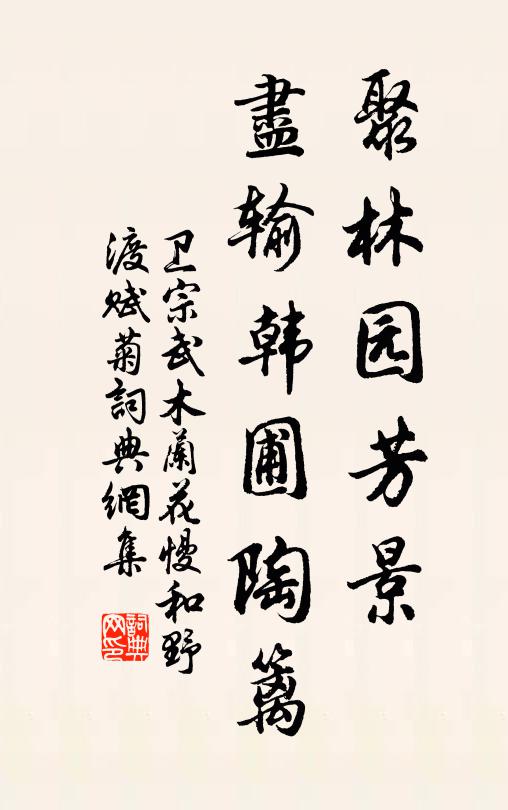 聚林园芳景
盡输韩圃陶篱
卫宗武木蘭花慢和野
渡赋菊詞典網集
詞典网印